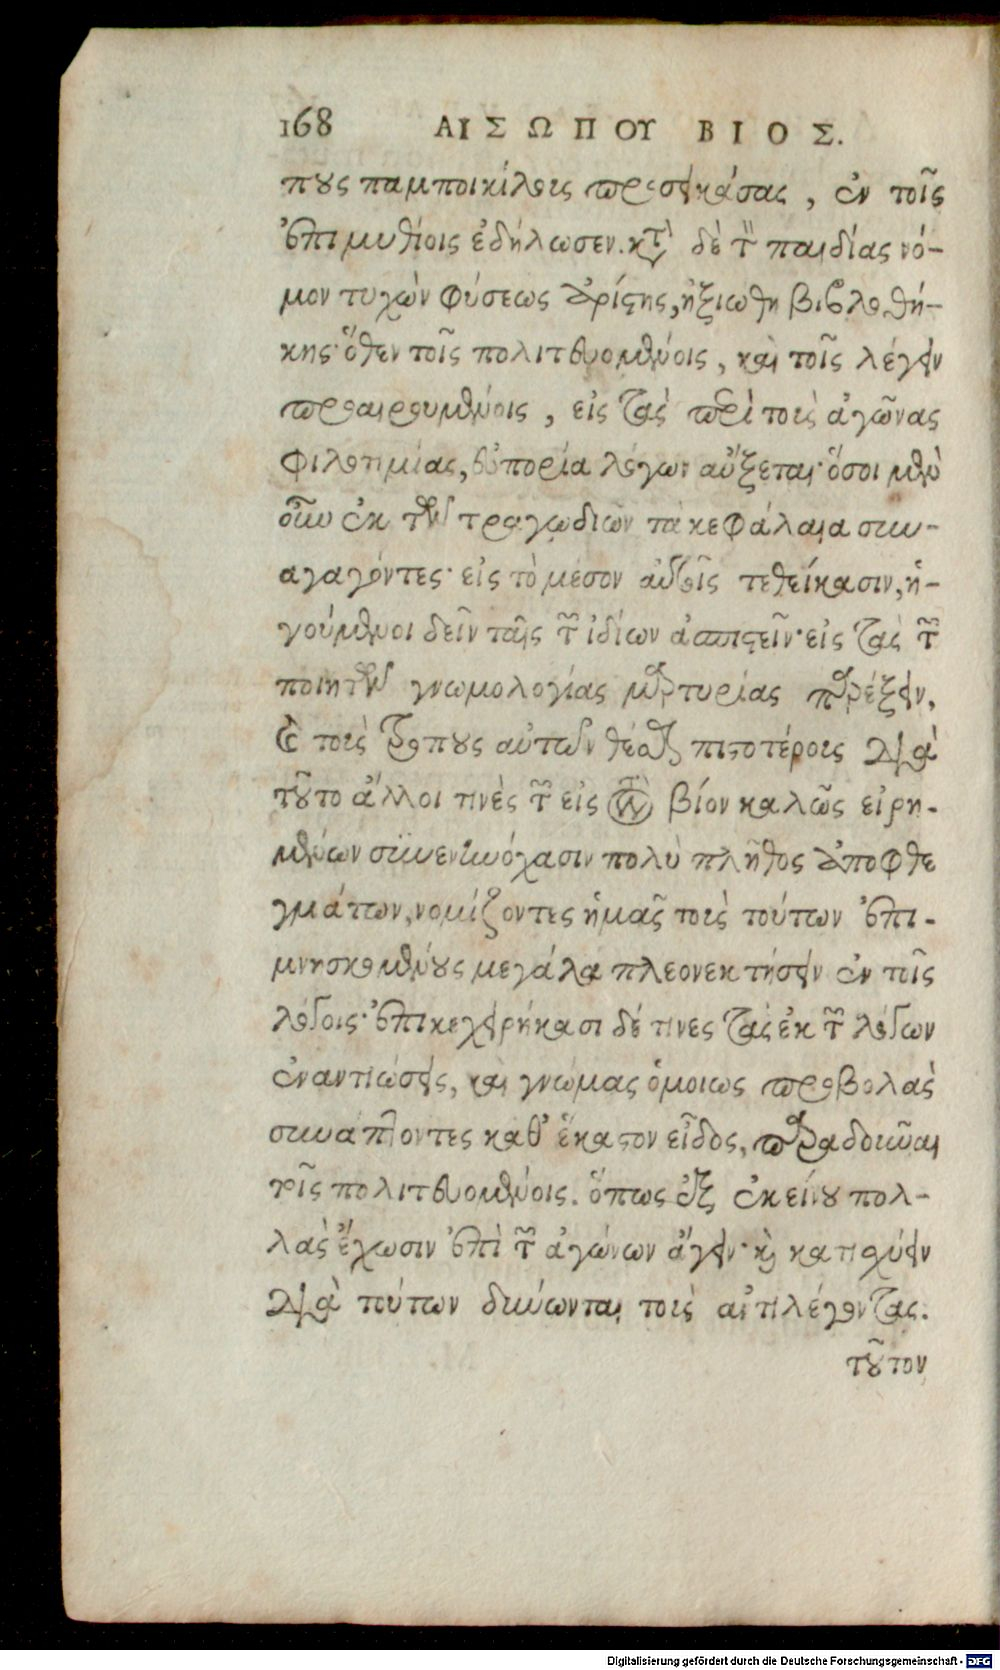 168 ΑΙΣΩΠΟΥ ΒΙΟΣ.
πους παμποικίλοις προσεικάσας, ἐν τοῖς
ἐπιμυθίοις ἐδήλωσεν. κατὰ δὲ τῆς παιδίας νό-
μον τυχὼν φύσεως ἀρίστης, ἠξιώθη βιβλοθή-
κης· ὅθεν τοῖς πολιτευομένοις, καὶ τοῖς λέγειν
προαιρουμένοις, εἰς τὰς περὶ τοὺς ἀγῶνας
φιλοτιμίας, εὐπορία λόγων αὔξεται· ὅσοι μὲν
οὖν ἐκ τῶν τραγωδιῶν τὰ κεφάλαια συν-
αγαγόντες· εἰς τὸ μέσον αὐτοῖς τεθείκασιν, ἡ-
γούμενοι δεῖν ταῖς τῶν ἰδίων ἀσπιστεῖν· εἰς τὰς τῶν
ποιητῶν γνωμολογίας μαρτυρίας παρέξειν,
καὶ τοὺς τόπους αὐτῶν θέσθαι πιστοτέροις διὰ
τοῦτο ἄλλοι τινὲς τῶν εἰς τὸν βίον καλῶς εἰρη-
μένων συνενηνόχασιν πολὺ πλῆθος ἀποφθε
γμάτων, νομίζοντες ἡμᾶς τοὺς τούτων ἐπι-
μνησκομένους μεγάλα πλεονεκτήσειν ἐν τοῖς
λόγοις· ἐπικεχειρήκασι δέ τινες τὰς ἐκ τῶν λόγων
ἐναντιώσεις, καὶ γνώμας ὁμοιως προβολὰς
συνάπτοντες καθ' ἕκαστον εἶδος, παραδοῦναι
τοῖς πολιτευομένοις. ὅπως ἐξ ἐκείνου πολ-
λὰς ἔχωσιν ἐπὶ τῶν ἀγώνων ἄγειν· καὶ κατισχύειν
διὰ τούτων δύνωνται τοὺς ἀντιλέγοντας.
τοῦτον
Digitalisierung gefördert durch die Deutsche Forschungsgemeinschaft - DFG